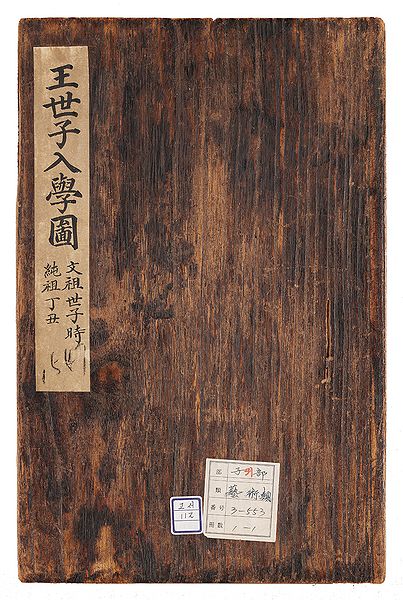 王世子入學圖
文祖世子時
純祖丁丑
部 子 部
類 藝術類
番号 3-553
冊数 1-1
고서
112